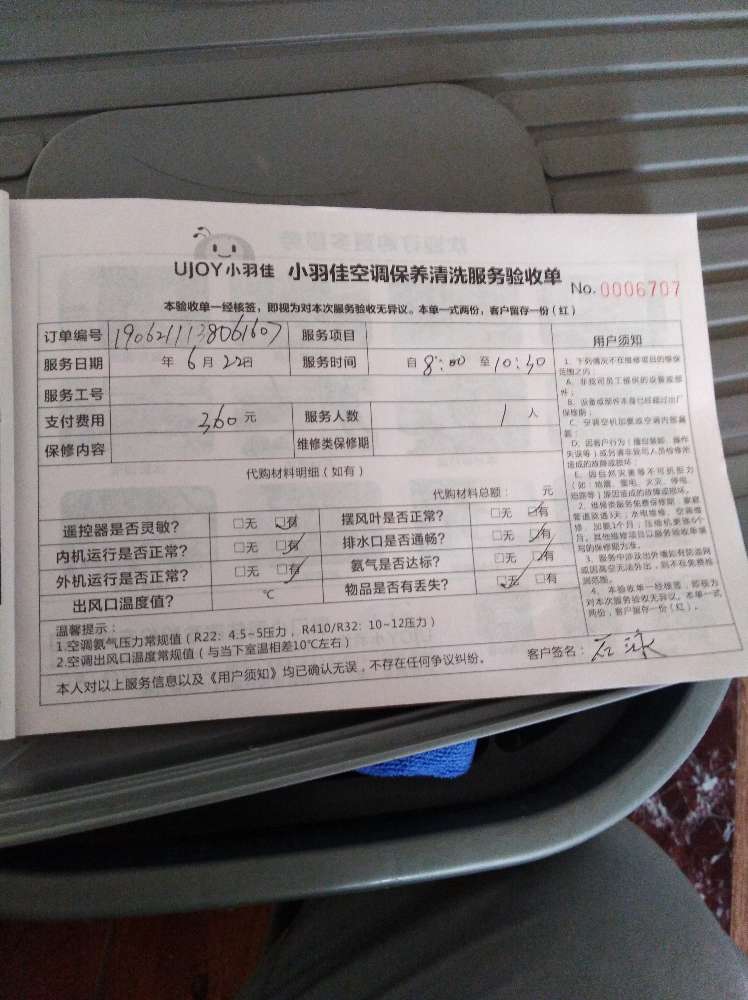 UJOY小羽佳 小羽佳空调保养清洗服务验收单 No. 0006707
本验收单一经核签，即视为对本次服务验收无异议。本单一式两份，客户留存一份（红）
订单编号 1906211138061607 服务项目
服务日期 年 6 月 22日 服务时间 自 8:00 至 10:30
服务工号
支付费用 360 元 服务人数 1 人
保修内容 维修类保修期
代购材料明细（如有）
代购材料总额： 元
遥控器是否灵敏？ □无 □有 摆风叶是否正常？ □无 □有
内机运行是否正常？ □无 □有 排水口是否通畅？ □无 □有
外机运行是否正常？ □无 □有 氨气是否达标？ □无 □有
出风口温度值？ ℃ 物品是否有丢失？ □无 □有
温馨提示：
1.空调氨气压力常规值（R22: 4.5~5压力，R410/R32: 10~12压力）
2.空调出风口温度常规值（与当下室温相差10℃左右）
本人对以上服务信息以及《用户须知》均已确认无误，不存在任何争议纠纷。 客户签名：
用户须知
1、下列情况不在维修项目的维保
范围之内：
A、非我司员工提供的设备或部
件；
B、设备或部件本身已经超过出厂
保修期；
C、空调空机加氨或空调内部漏
氨；
D、因客户行为（擅自装卸、操作
失误等）或另请非我司人员检修所
造成的故障或损坏；
E、因自然灾害等不可抗拒力
（如：地震、雷电、火灾、停电、
追踪等）原因造成的故障或损坏。
2、维修类服务免费保修期：家庭
管道疏通3天；水电维修、空调维
修、加氨1个月；压缩机更换6个
月。其他维修项目以服务验收单填
写的保修期为准。
3、服务中涉及出外墙如有防盗网
或因高空无法外出，则不在免费检
测范围。
4、本验收单一经核签，即视为
对本次服务验收无异议。本单一式
两份，客户留存一份（红）。